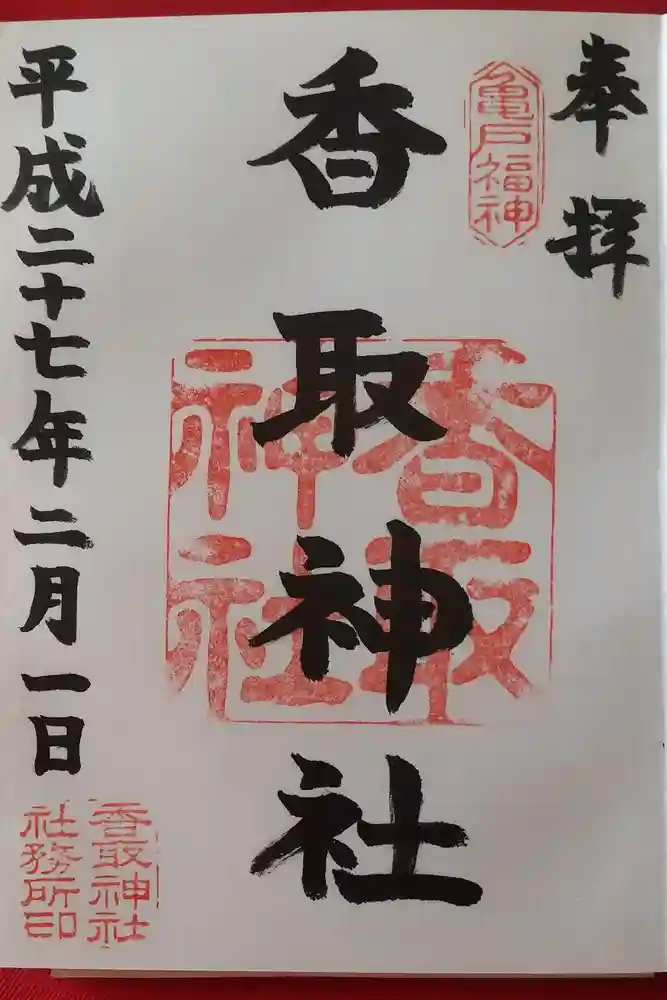 奉拝
亀戸福神
香取神社
香取神社
平成二十七年二月一日
香取神社
社務所印